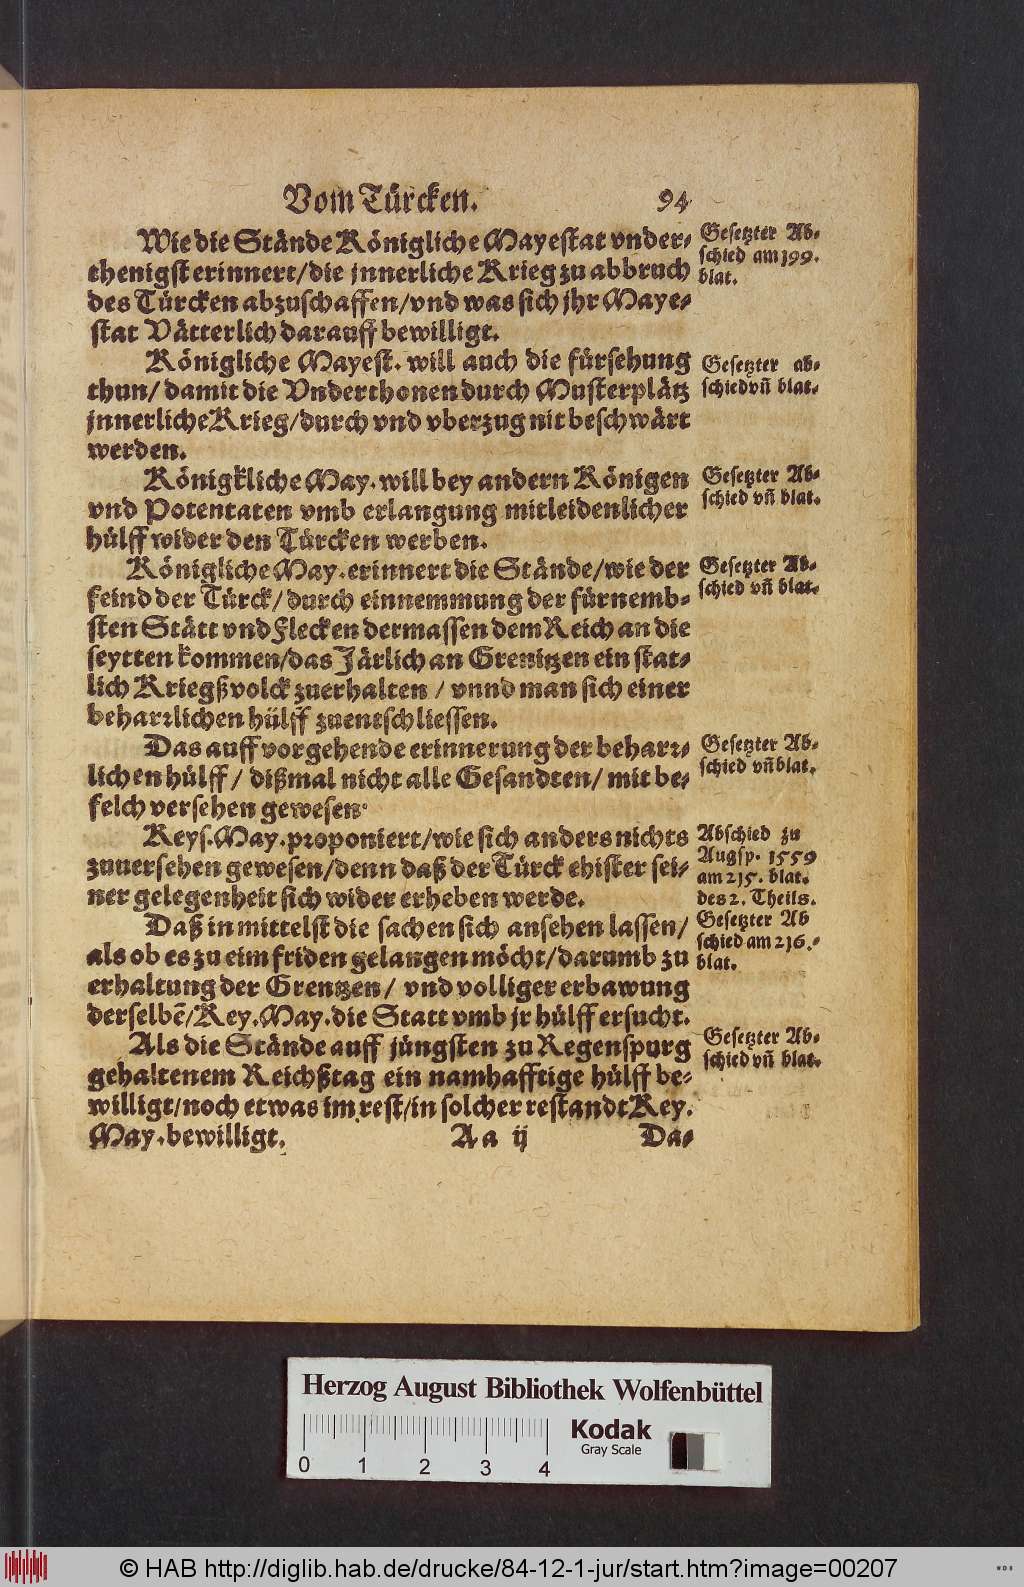 Vom Türcken. 94
Wie die Stände Königliche Mayestat vnder-
thenigst erinnert/die jnnerliche Krieg zu abbruch
des Türcken abzuschaffen/vnd was sich jhr Maye-
stat Vätterlich darauff bewilligt.
Gesetzter Ab-
schied am 199.
blat.
Königliche Mayest. will auch die fürsehung
thun/ damit die Vnderthonen durch Musterplätz
jnnerliche Krieg/durch vnd vberzug nit beschwärt
werden.
Gesetzter ab-
schied vñ blat.
Königkliche May. will bey andern Königen
vnd Potentaten vmb erlangung mitleidenlicher
hülff wider den Türcken werben.
Gesetzter Ab-
schied vñ blat.
Königliche May. erinnert die Stände/wie der
feind der Türck/durch einnemmung der fürnemb-
sten Stätt vnd Flecken dermassen dem Reich an die
seytten kommen/das Järlich an Grenitzen ein stat-
lich Kriegßvolck zuerhalten / vnnd man sich einer
beharrlichen hülff zuentschliessen.
Gesetzter Ab-
schied vñ blat.
Das auff vorgehende erinnerung der beharr-
lichen hülff / dißmal nicht alle Gesandten/ mit be-
felch versehen gewesen.
Gesetzter Ab-
schied vñ blat.
Keys. May. proponiert/wie sich anders nichts
zuuersehen gewesen/denn daß der Türck ehister sei-
ner gelegenheit sich wider erheben werde.
Abschied zu
Augsp. 1559
am 215. blat.
des 2. Theils.
Daß in mittelst die sachen sich ansehen lassen/
als ob es zu eim friden gelangen möcht/darumb zu
erhaltung der Grentzen/ vnd volliger erbawung
derselbē/Key. May. die Statt vmb jr hülff ersucht.
Gesetzter Ab
schied am 216.-
blat.
Als die Stände auff jüngsten zu Regenspurg
gehaltenem Reichßtag ein namhafftige hülff be-
willigt/noch etwas im rest/in solcher restandt Key.
May. bewilligt.
Gesetzter Ab-
schied vñ blat.
Aa ij Da-
Herzog August Bibliothek Wolfenbüttel
0 1 2 3 4
Kodak
Gray Scale
© HAB http://diglib.hab.de/drucke/84-12-1-jur/start.htm?image=00207